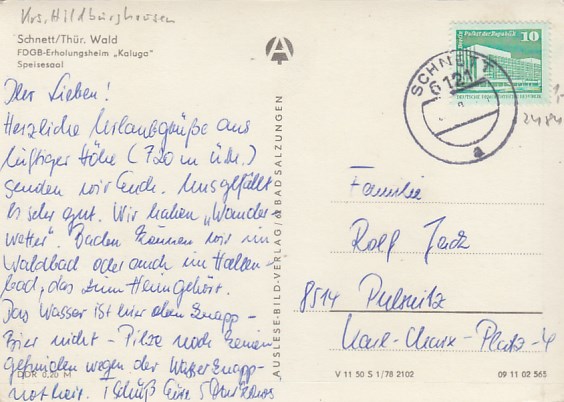 Krs. Hildburghausen
Schnett/Thür. Wald
FDGB-Erholungsheim „Kaluga"
Speisesaal
Ihr Lieben!
Herzliche Urlaubsgrüße aus
luftiger Höhe (720 m ü.M.)
senden wir Euch. Uns gefällt
es sehr gut. Wir haben „Wander
wetter". Baden können wir im
Waldbad oder auch im Hallen-
bad, das zum Heim gehört.
Das Wasser ist hier oben knapp -
Bier nicht - Pilze noch keinen
gefunden wegen der Wasserknapp-
heit.
Tschüß Eure
DDR 0,20 M
AUSLESE-BILD-VERLAG/ BAD SALZUNGEN
A
Palast der Republik
10
SCHNETT
6121
a
2484
Familie
Rolf
8514 Pulsnitz
Karl-Marx-Platz-4
V 11 50 S 1/78 2102
09 11 02 565